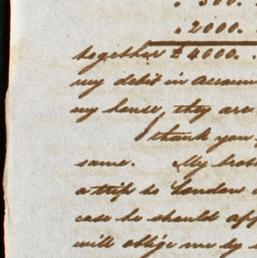 " 500.
" 2000.
together £4000.
my debit in account
my house, they are
I thank you
same. My brot
a trip to London
case he should app
will oblige me by